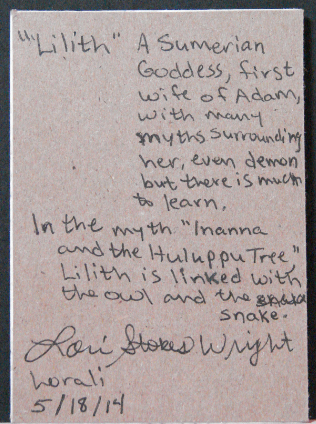 "Lilith" A Sumerian
Goddess, first
wife of Adam,
with many
myths surrounding
her, even demon
but there is much
to learn.
In the myth "Inanna
and the Huluppu Tree"
Lilith is linked with
the owl and the
snake.
Lori Stokes Wright
Lorali
5/18/14